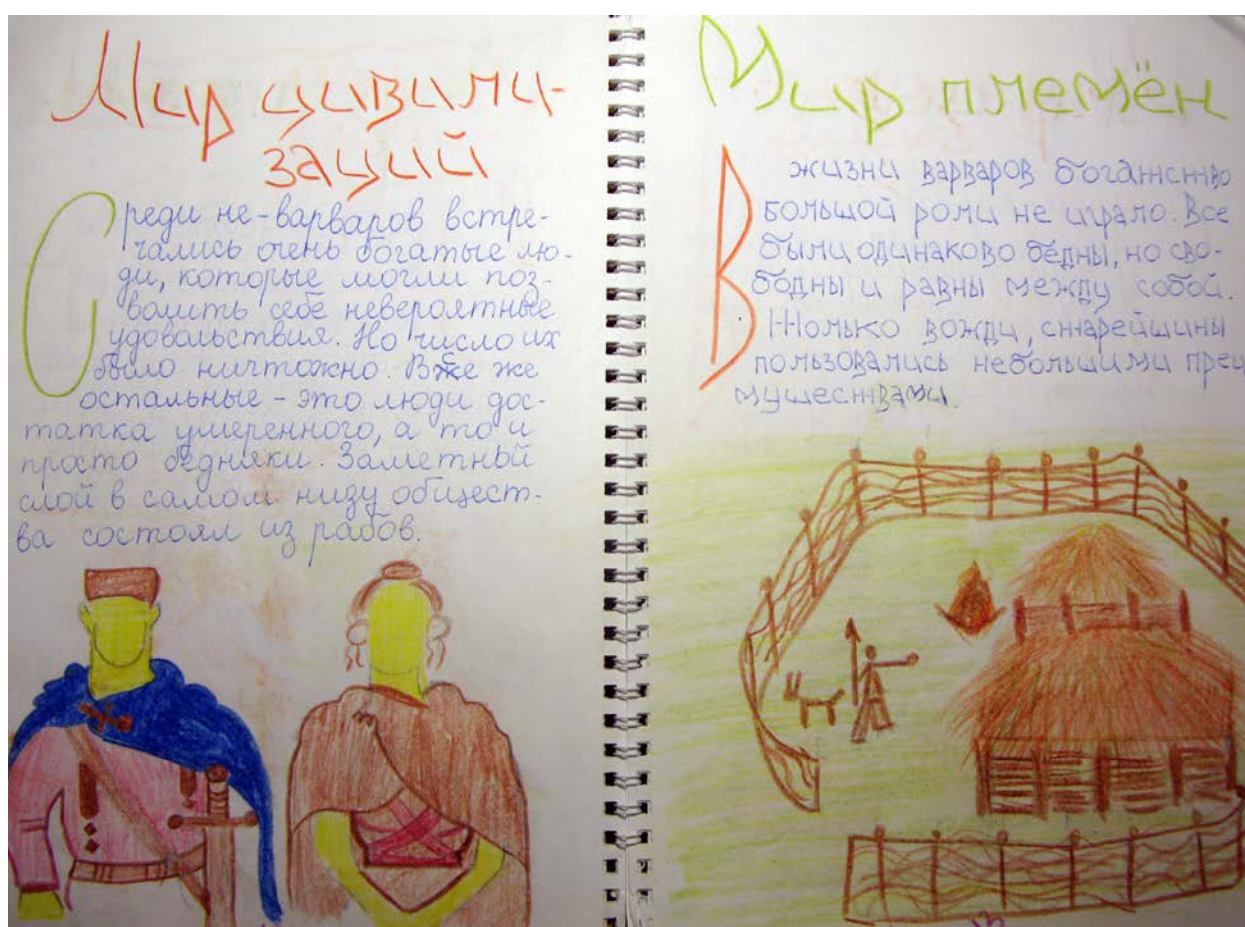 Мир цивили-
заций
Среди не-варваров встре-
чались очень богатые лю-
ди, которые могли поз-
волить себе невероятные
удовольствия. Но число их
было ничтожно. Все же
остальные - это люди дос-
татка умеренного, а то и
просто бедняки. Заметный
слой в самом низу общест-
ва состоял из рабов.
Мир племён
В жизни варваров богатство
большой роли не играло. Все
были одинаково бедны, но сво-
бодны и равны между собой.
Только вожди, старейшины
пользовались небольшими преи
муществами.